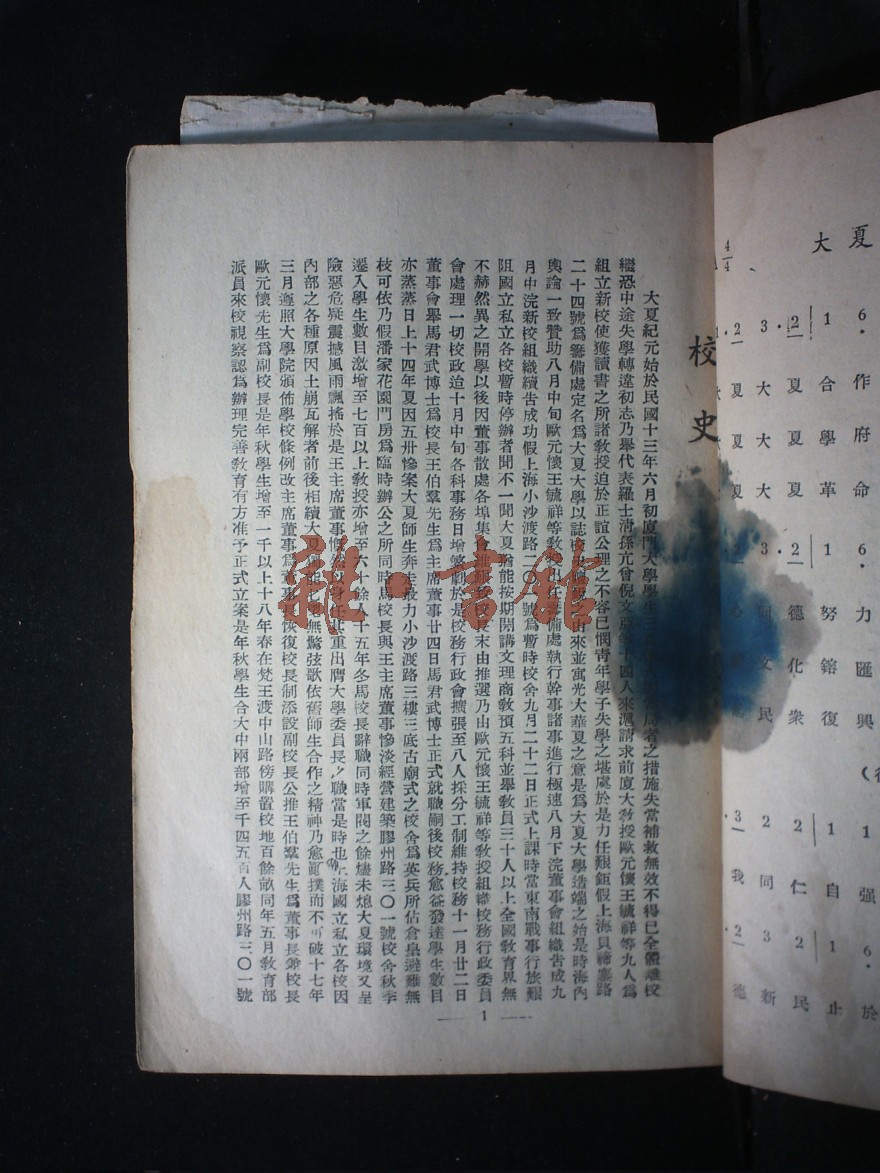 夏
大
4/4
校史
大夏紀元始於民國十三年六月初廈門大學學生三者之措施失當補救無效不得已全體離校
繼恐中途失學轉違初志乃舉代表羅士清孫亢曾倪文亞等十四人來滬請求前廈大敎授歐元懷王毓祥等九人爲
組立新校使獲讀書之所諸敎授迫於正誼公理之不容已憫靑年學子失學之堪虞於是力任艱鉅假上海貝禘鏖路
二十四號爲籌備處定名爲大夏大學以誌校之由來並寓光大華夏之意是爲大夏大學造端之始是時海內
輿論一致贊助八月中旬歐元懷王毓祥等敎授出任籌備處執行幹事諸事進行極速八月下浣董事會組織吿成九
月中浣新校組織續吿成功假上海小沙渡路二〇一號爲暫時校舍九月二十二日正式上課時當東南戰事行旅艱
阻國立私立各校暫時停辦者聞不一聞大夏獨能按期開講文理商敎預五科並舉敎員三十人以上全國敎育界無
不赫然異之開學以後因董事散處各埠集會維艱致校長末由推選乃由歐元懷王毓祥等敎授組織校務行政委員
會處理一切校政迨十月中旬各科事務日增繁劇於是校務行政會擴張至八人採分工制維持校務十一月廿二日
董事會舉馬君武博士爲校長王伯羣先生爲主席董事廿四日馬君武博士正式就職嗣後校務愈益發達學生數目
亦蒸蒸日上十四年夏因五卅慘案大夏師生奔走最力小沙渡路三樓三底古廟式之校舍爲英兵所佔倉臯避難無
枝可依乃假潘家花園門房爲臨時辦公之所同時馬校長與王主席董事慘淡經營建築膠州路三〇一號校舍秋季
遷入學生數目激增至七百以上敎授亦增至六十餘人十五年冬馬校長辭職同時軍閥之餘燼未熄大夏環境又呈
險惡危疑震撼風雨飄搖於是王主席董事慨然以身任其重出膺大學委員長之職當是時也上海國立私立各校因
內部之各種原因土崩瓦解者前後相續大夏獨能匕鬯無驚弦歌依舊師生合作之精神乃愈顚撲而不可破十七年
三月遵照大學院頒佈學校條例改主席董事爲董事長恢復校長制添設副校長公推王伯羣先生爲董事長兼校長
歐元懷先生爲副校長是年秋學生增至一千以上十八年春在梵王渡中山路傍購置校地百餘畝同年五月敎育部
派員來校視察認爲辦理完善敎育有方准予正式立案是年秋學生合大中兩部增至千四五百人膠州路三〇一號
1
2 3 2 | 1 6
夏 大 夏 合 作
夏 大 夏 學 府
夏 大 夏 革 命
3 2 | 1 6
德 努 力
文 化 鎔 匯
民 衆 復 興
3 2 2 | 1
我 同 仁 自 强
2 3 2 | 1 6
德 新 民 止 於
雜·書館